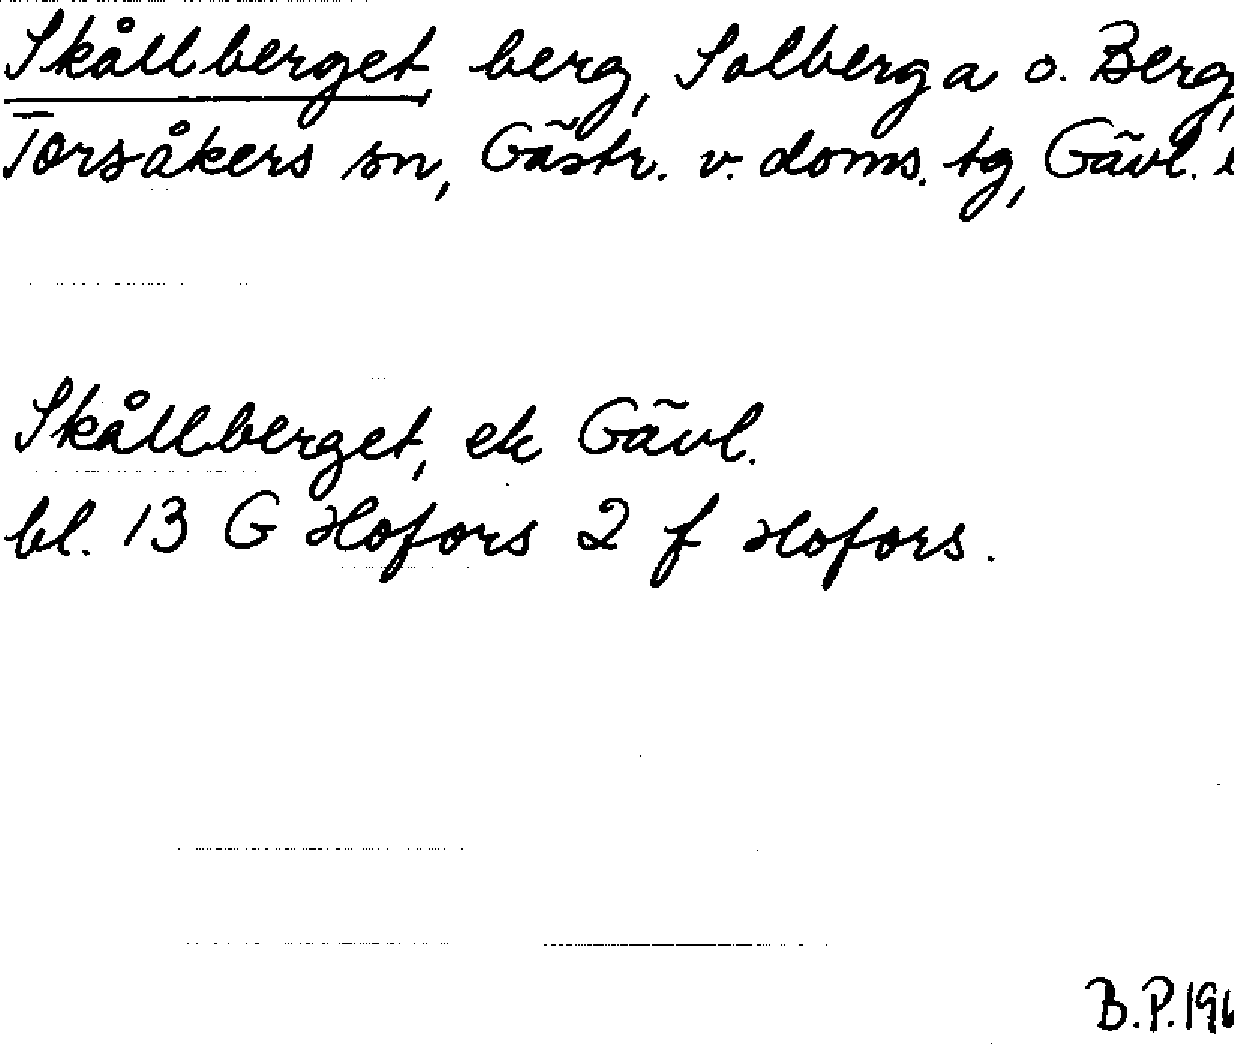 Skållberget berg, Solberga o. Berg,
Torsåkers sn, Gästr. v. doms. tg, Gävl.
Skållberget, ek Gävl.
bl. 13 G Hofors 2 f Hofors.
B.P.